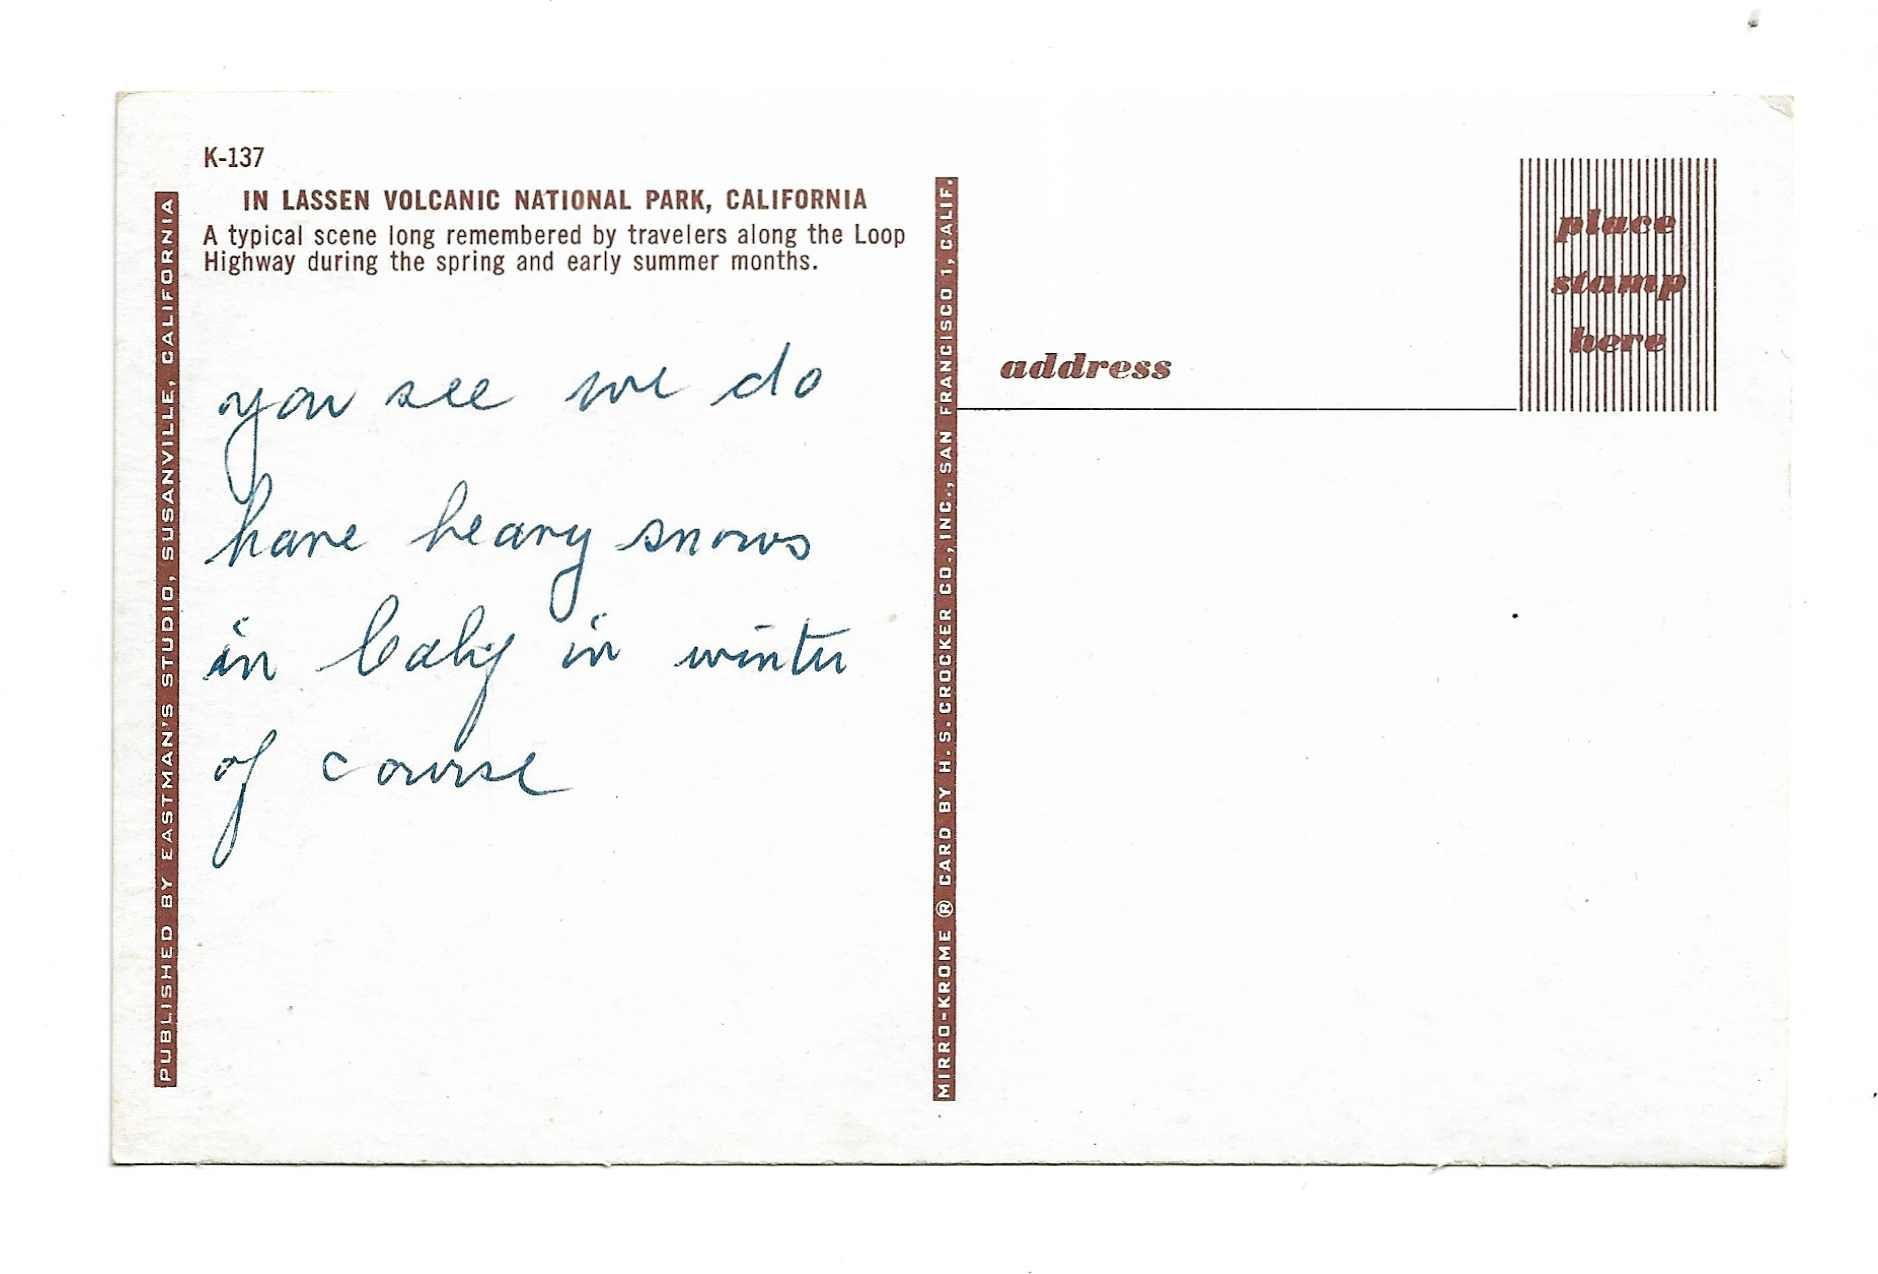 K-137
IN LASSEN VOLCANIC NATIONAL PARK, CALIFORNIA
A typical scene long remembered by travelers along the Loop
Highway during the spring and early summer months.
you see we do
have heavy snows
in Calif in winter
of course
PUBLISHED BY EASTMAN'S STUDIO, SUSANVILLE, CALIFORNIA
MIRRO-KROME ® CARD BY H. S. CROCKER CO., INC., SAN FRANCISCO 1, CALIF.
place
stamp
here
address